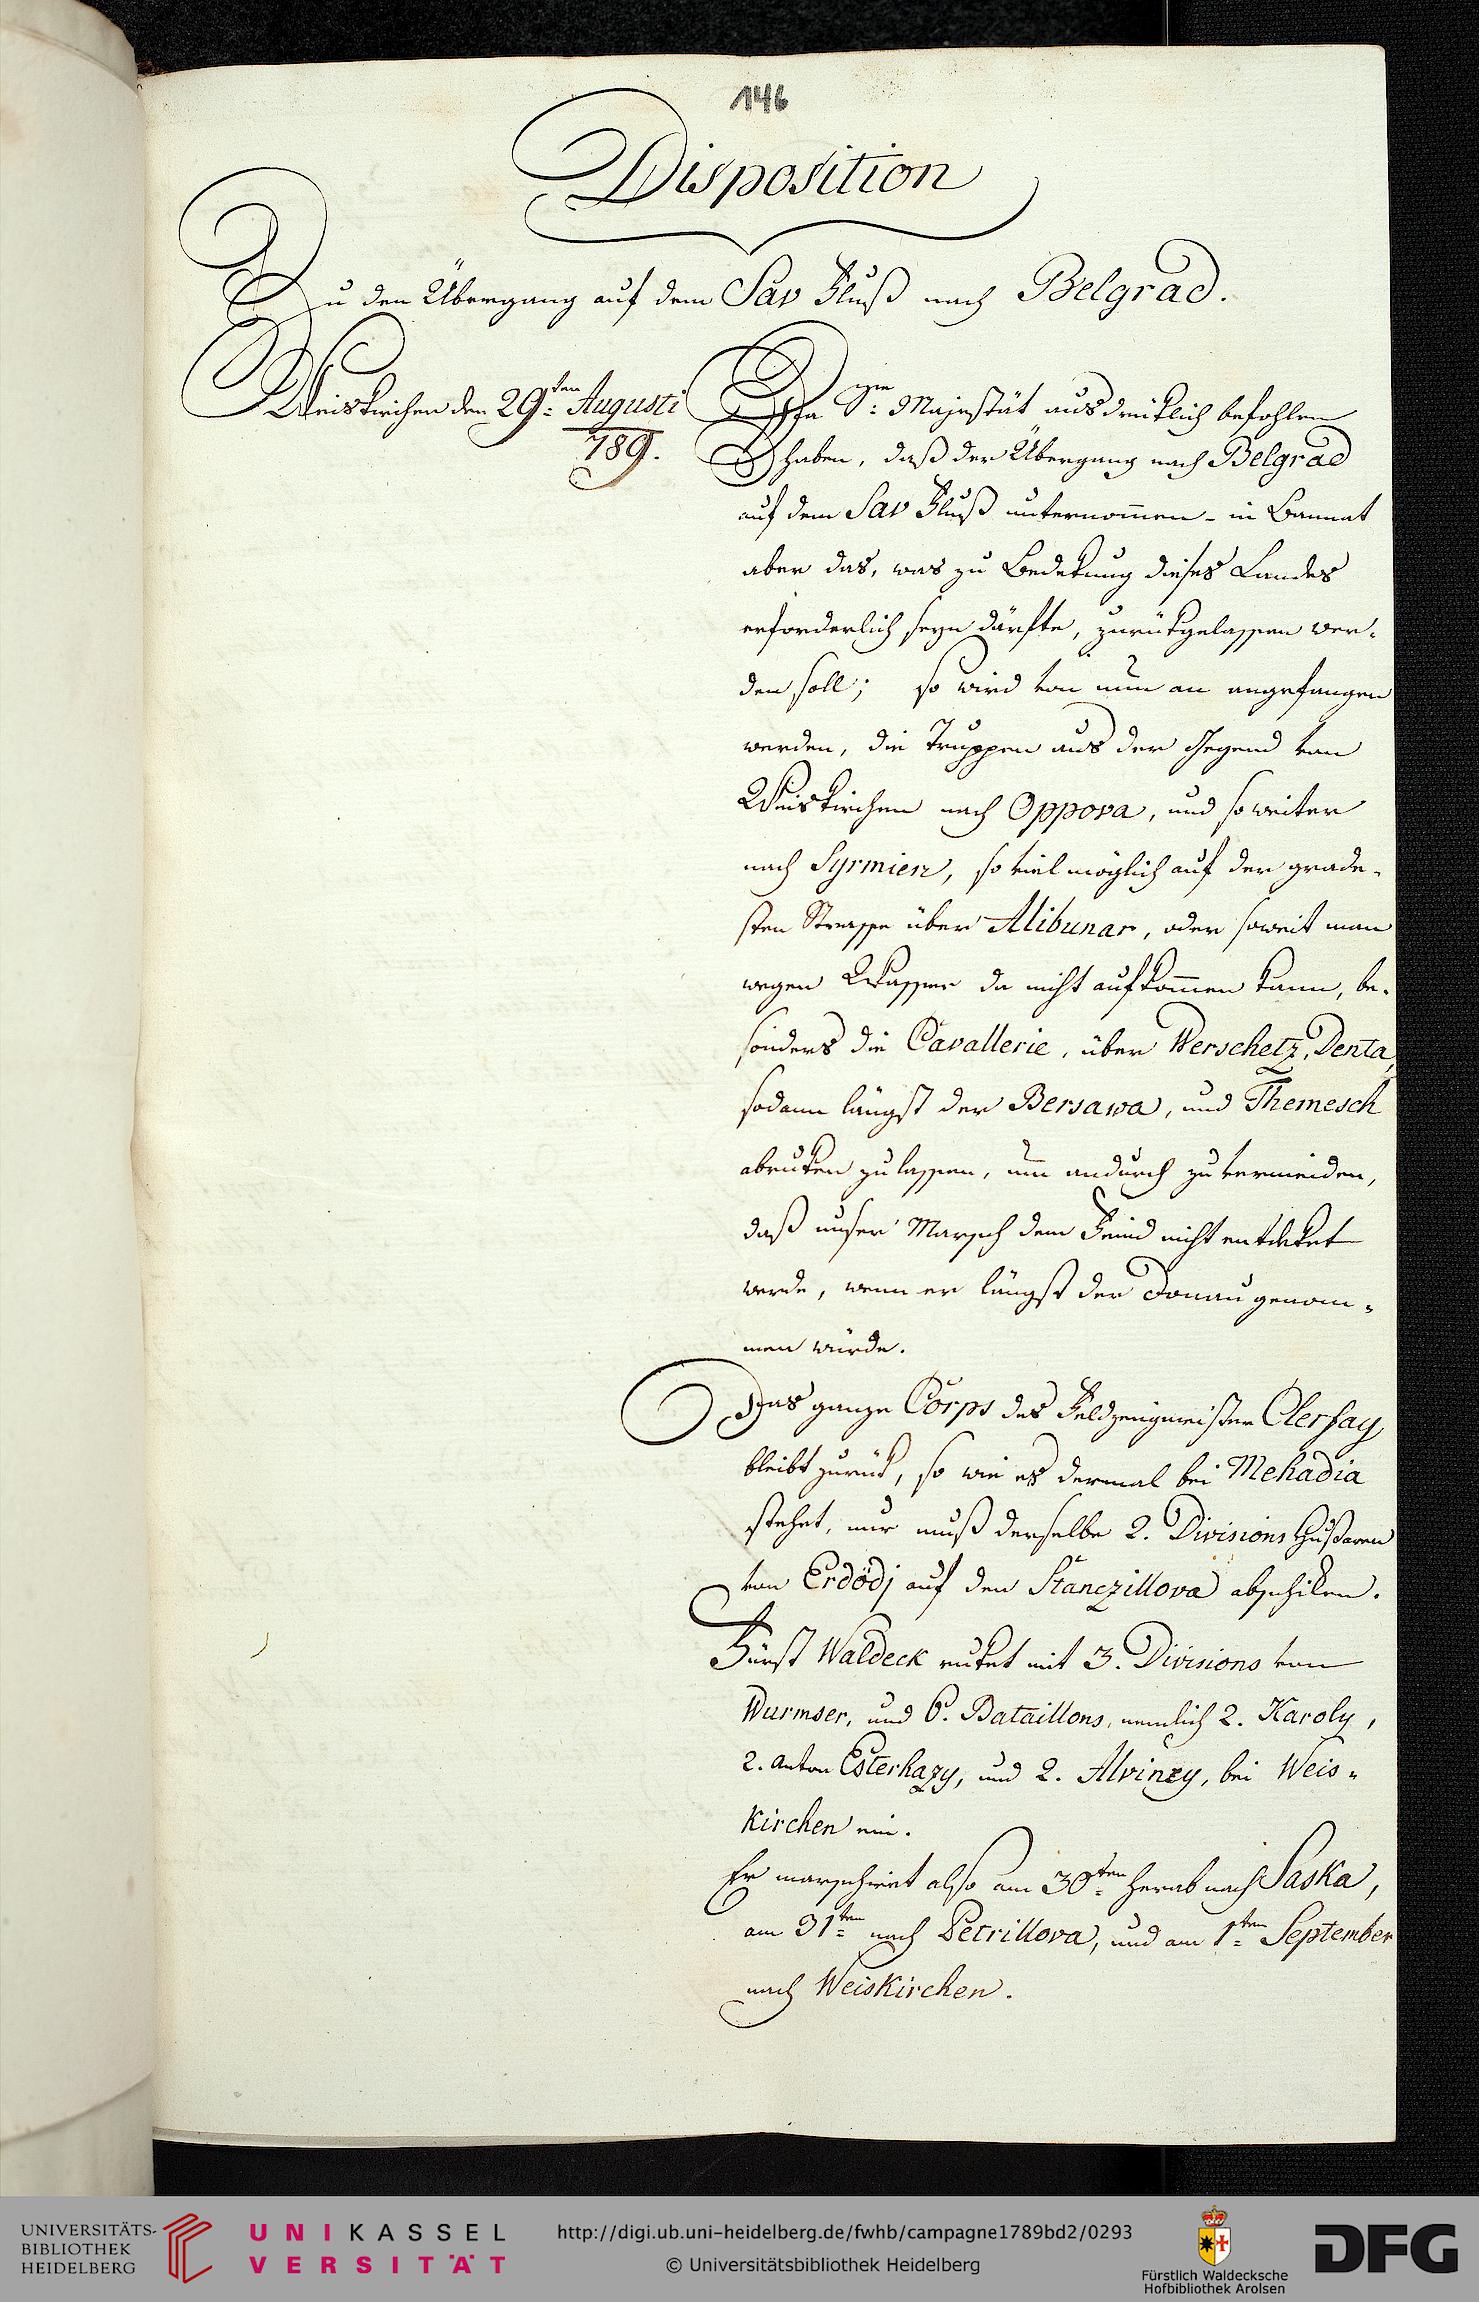 146
Disposition
Zu den Übergang auf dem Sav Fluß nach Belgrad.
Weiskirchen den 29ten Augusti
789.
Da Se: Majestät ausdrüklich befohlen
haben, daß der Übergang nach Belgrad
auf dem Sav Fluß unternom̄en - in Bannat
aber das, was zu Bedekung dieses Landes
erforderlich seyn därfte, zurükgelassen wer-
den soll; so wird von nun an angefangen
werden, die Truppen aus der Gegend von
Weiskirchen nach Oppova, und so weiter
nach Syrmien, so viel möglich auf der grade-
sten Strasse über Alibunar, oder soweit man
wegen Wasser da nicht aufkom̄en kann, be-
sonders die Cavallerie, über Werschetz, Denta,
sodann längst der Bersawa, und Themesch
abruken zu lassen, um andurch zu vermeiden,
daß unser Marsch dem Feind nicht entdeket
werde, wenn er längst der Donau genom-
men würde.
Das ganze Corps des Feldzeugmeister Clerfay
bleibt zurük, so wie es dermal bei Mehadia
stehet, nur muß derselbe 2. Divisions Hußaren
von Erdödj auf den Stanczillova abschiken.
Fürst Waldeck ruket mit 3. Divisions von
Wurmser, und 6. Bataillons, nemlich 2. Karoly,
2. Anton Esterhazy, und 2. Alvinzy, bei Weis-
kirchen ein.
Er marschiret also am 30ten herab nach Saska,
am 31ten nach Petrillova, und am 1ten September
nach Weiskirchen.
UNIVERSITÄTS-
BIBLIOTHEK
HEIDELBERG
UNIKASSEL
VERSITÄT
http://digi.ub.uni-heidelberg.de/fwhb/campagne1789bd2/0293
© Universitätsbibliothek Heidelberg
Fürstlich Waldecksche
Hofbibliothek Arolsen
DFG